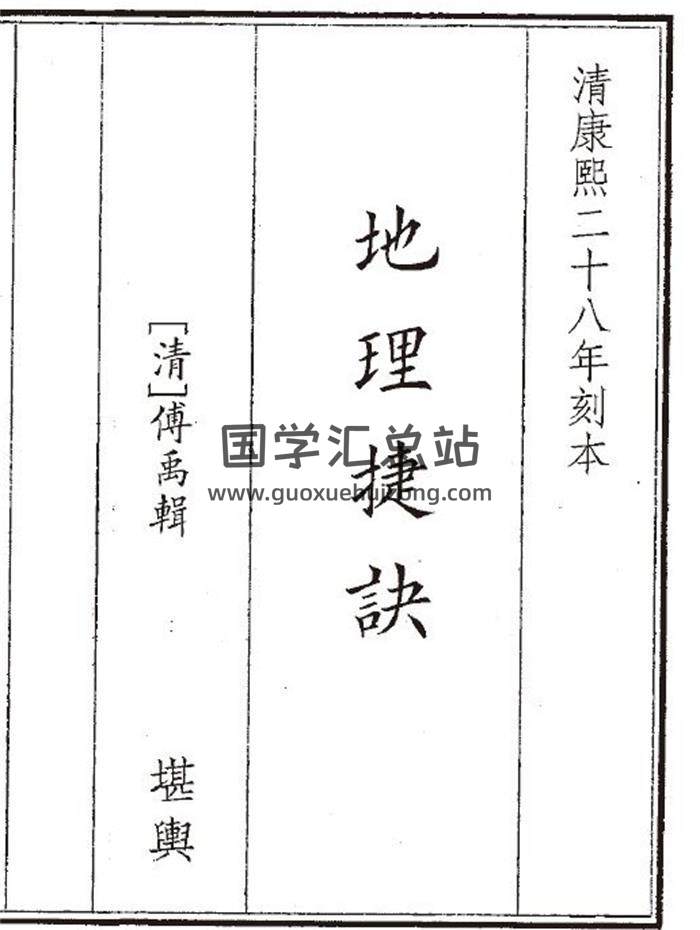 清康熙二十八年刻本
地理捷訣
［清］傅禹輯
堪輿
国学汇总站
www.guoxuehuizong.com